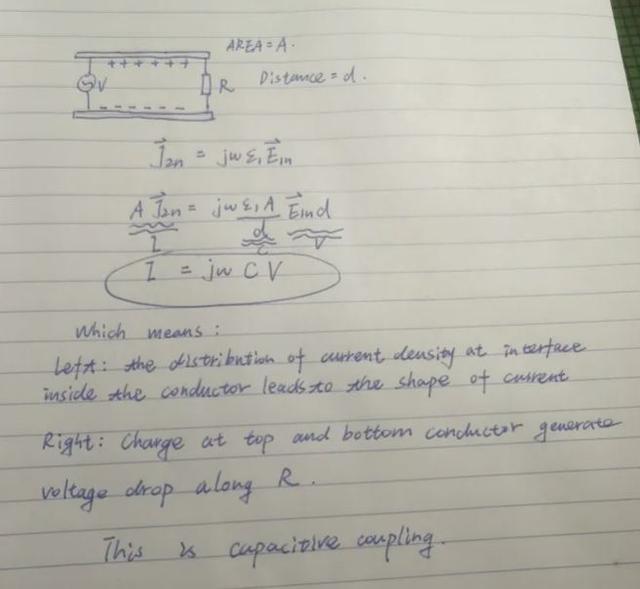 AREA = A.
+ + + + + +
V
R
Distance = d.
- - - - - -
J⃗2n = jw ε1 E⃗1n
A J⃗2n = jw ε1 A/d E⃗1n d
I C V
I = jw C V
Which means:
Left: the distribution of current density at interface
inside the conductor leads to the shape of current
Right: Charge at top and bottom conductor generate
voltage drop along R.
This is capacitive coupling.